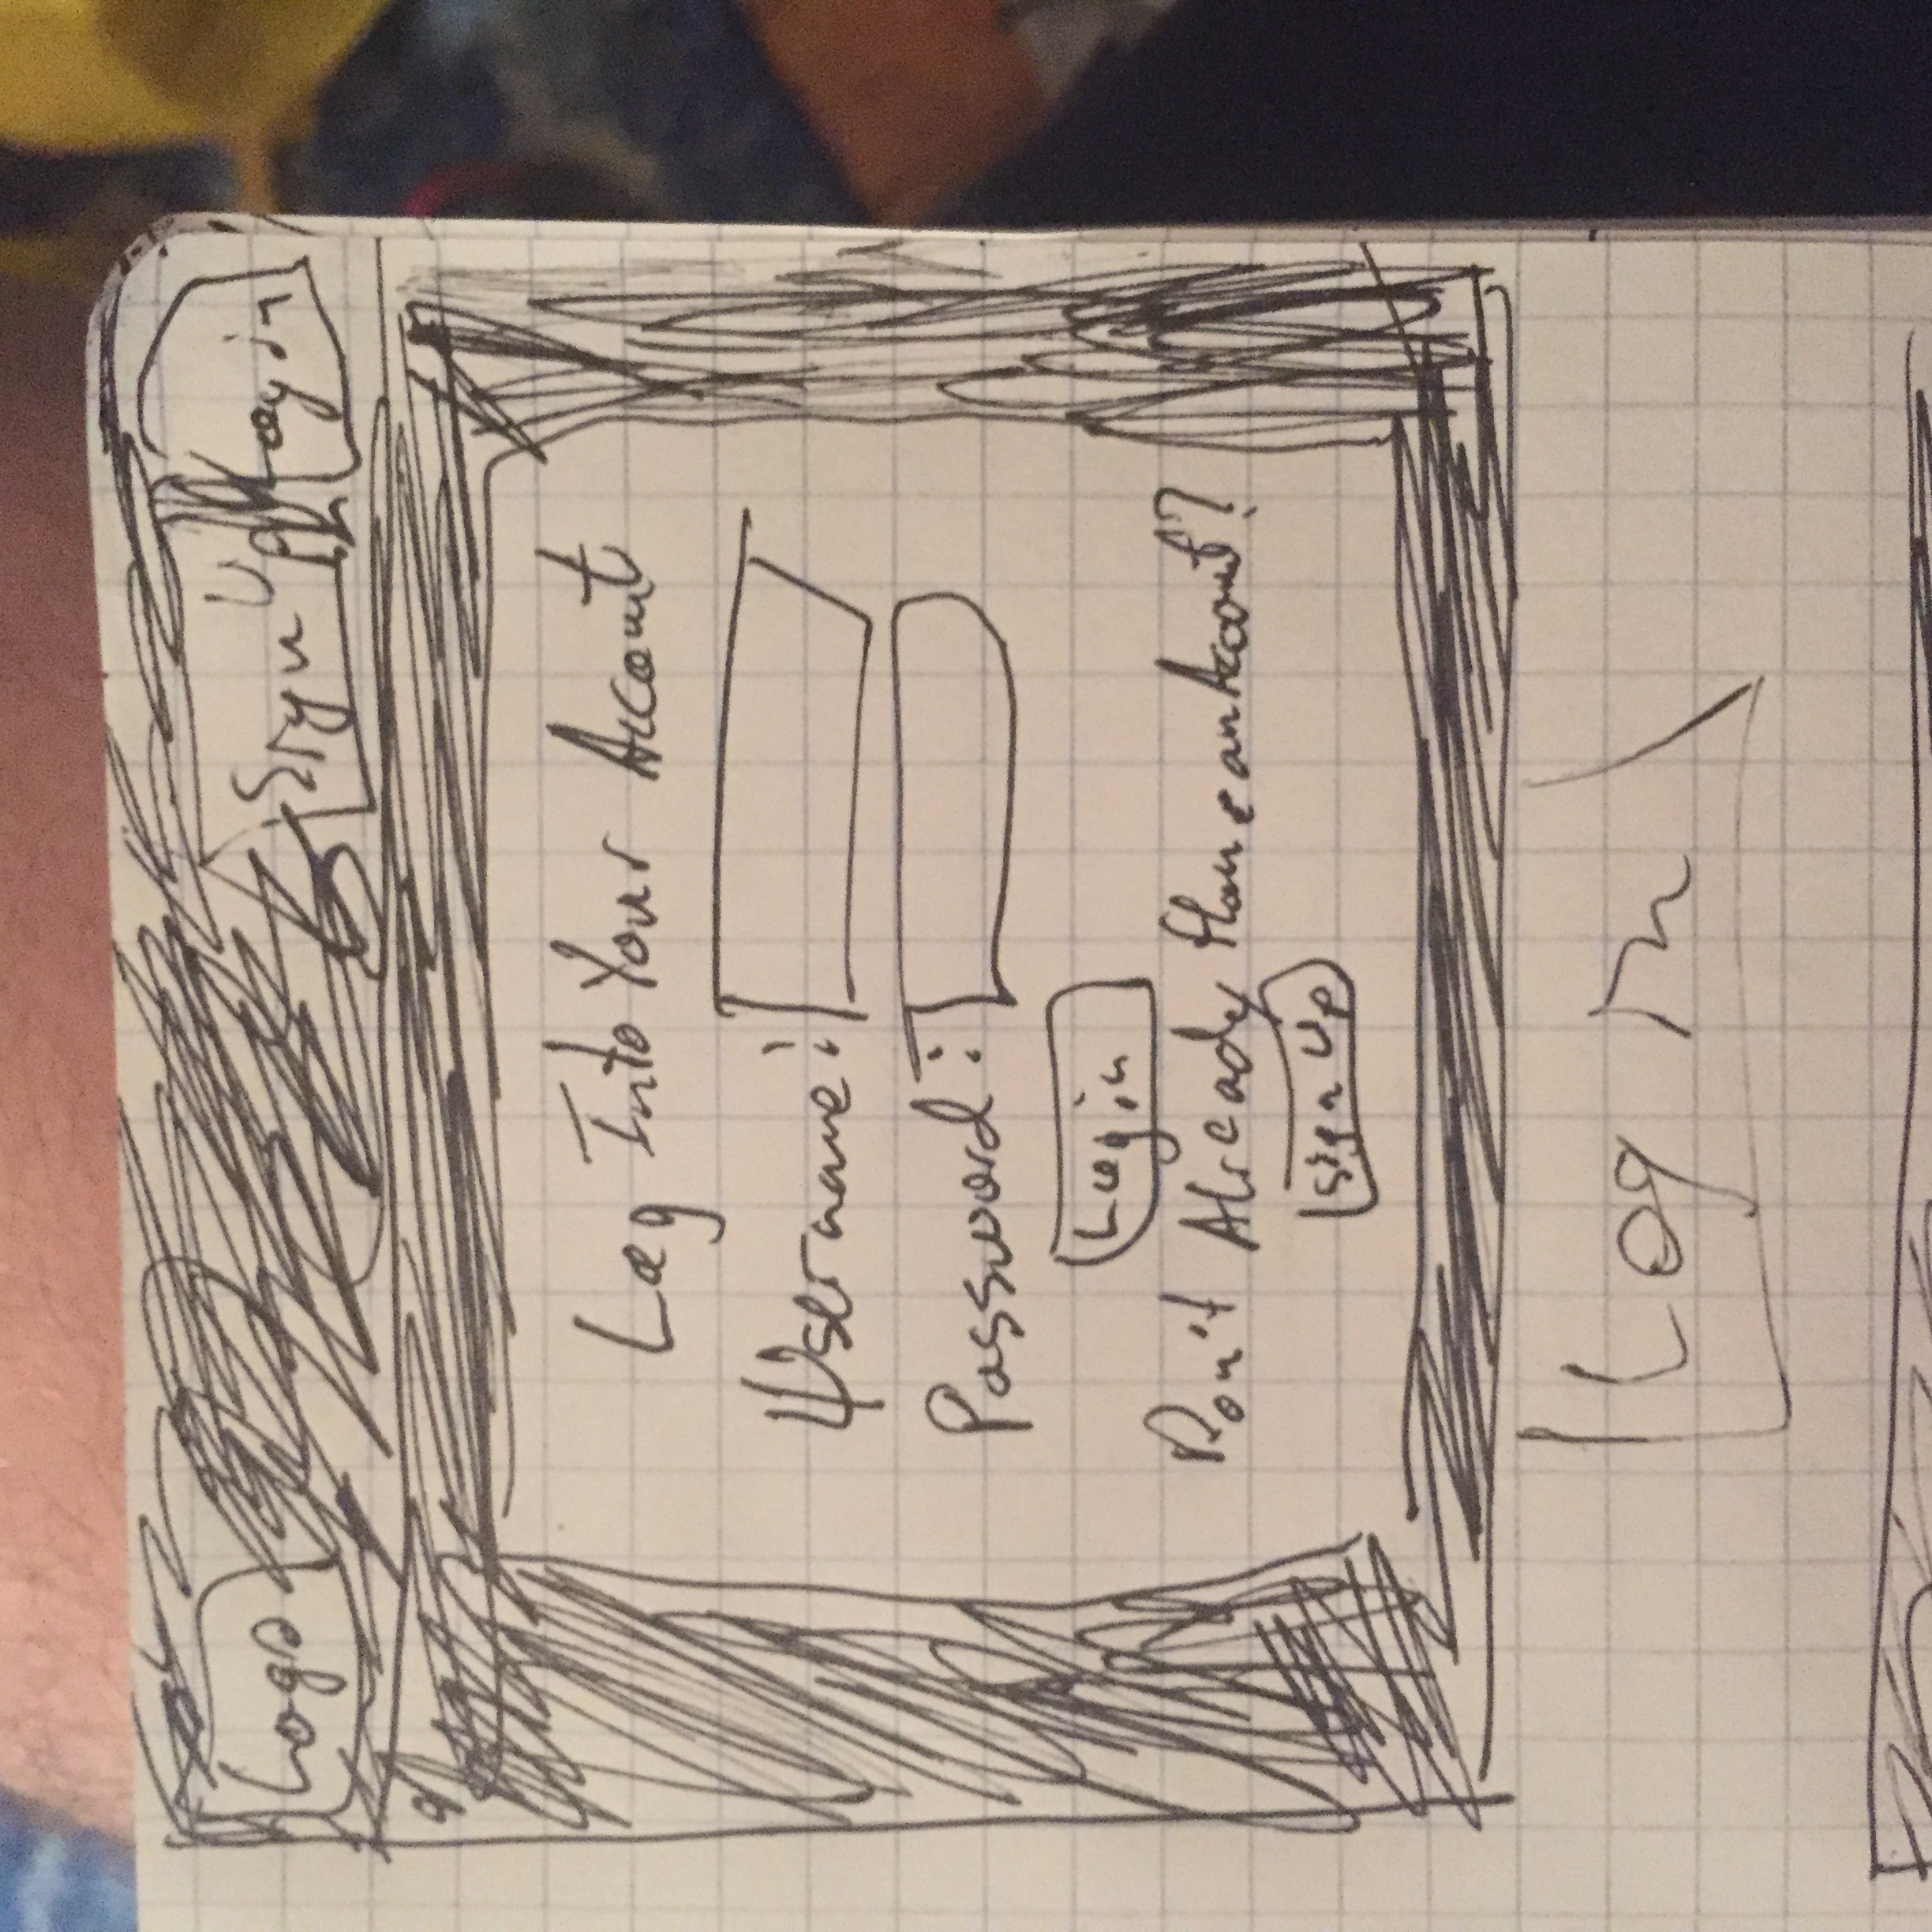 Logo Sign Up Login
Log Into Your Account
Username:
Password:
Login
Don't Already Have an Account?
Sign Up
Log in